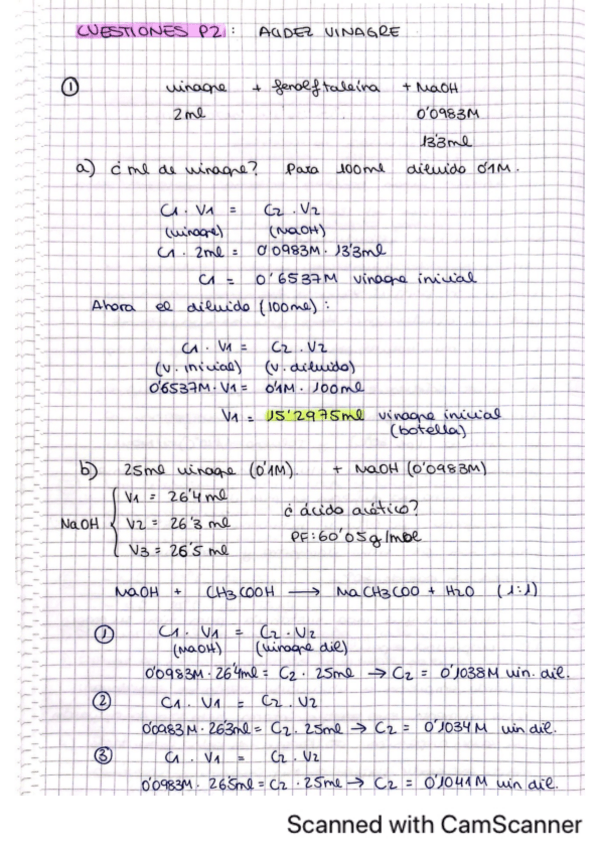 CUESTIONES P2: ACIDEZ VINAGRE
① vinagre + fenolftaleína + NaOH
2ml 0'0983M
13'3ml
a) ¿ ml de vinagre? Para 100ml diluido 0'1M.
C1 · V1 = C2 · V2
(vinagre) (NaOH)
C1 · 2ml = 0'0983M · 13'3ml
C1 = 0'6537M vinagre inicial
Ahora el diluido (100ml):
C1 · V1 = C2 · V2
(v. inicial) (v. diluido)
0'6537M · V1 = 0'1M · 100ml
V1 = 15'2975ml vinagre inicial
(botella)
b) 25ml vinagre (0'1M) + NaOH (0'0983M)
V1 = 26'4 ml
NaOH { V2 = 26'3 ml ¿ ácido acético?
V3 = 26'5 ml PF: 60'05g/mol
NaOH + CH3COOH → NaCH3COO + H2O (1:1)
① C1 · V1 = C2 · V2
(NaOH) (vinagre dil)
0'0983M · 26'4ml = C2 · 25ml → C2 = 0'1038M vin. dil.
② C1 · V1 = C2 · V2
0'0983M · 26'3ml = C2 · 25ml → C2 = 0'1034M vin dil.
③ C1 · V1 = C2 · V2
0'0983M · 26'5ml = C2 · 25ml → C2 = 0'1041M vin dil.
Scanned with CamScanner